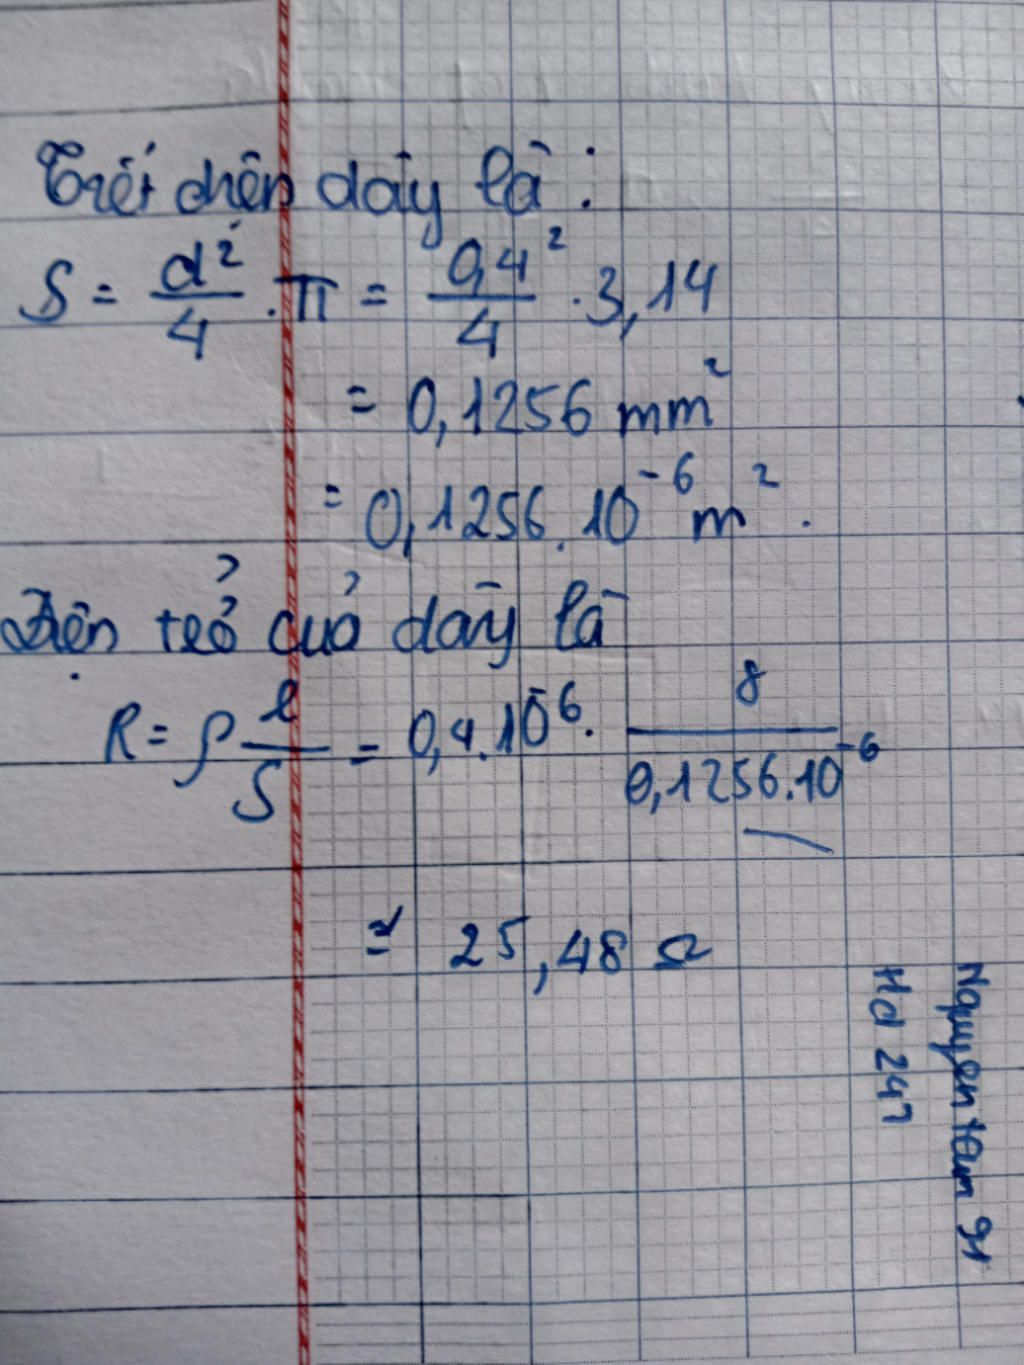 Tiết diện dây là:
S = d²/4 . π = 0,4²/4 . 3,14
= 0,1256 mm²
= 0,1256.10⁻⁶ m².
Điện trở của dây là
R = ρ l/S = 0,4.10⁻⁶. 8/0,1256.10⁻⁶
≃ 25,48 Ω
Nguyentam 91
Hd 247